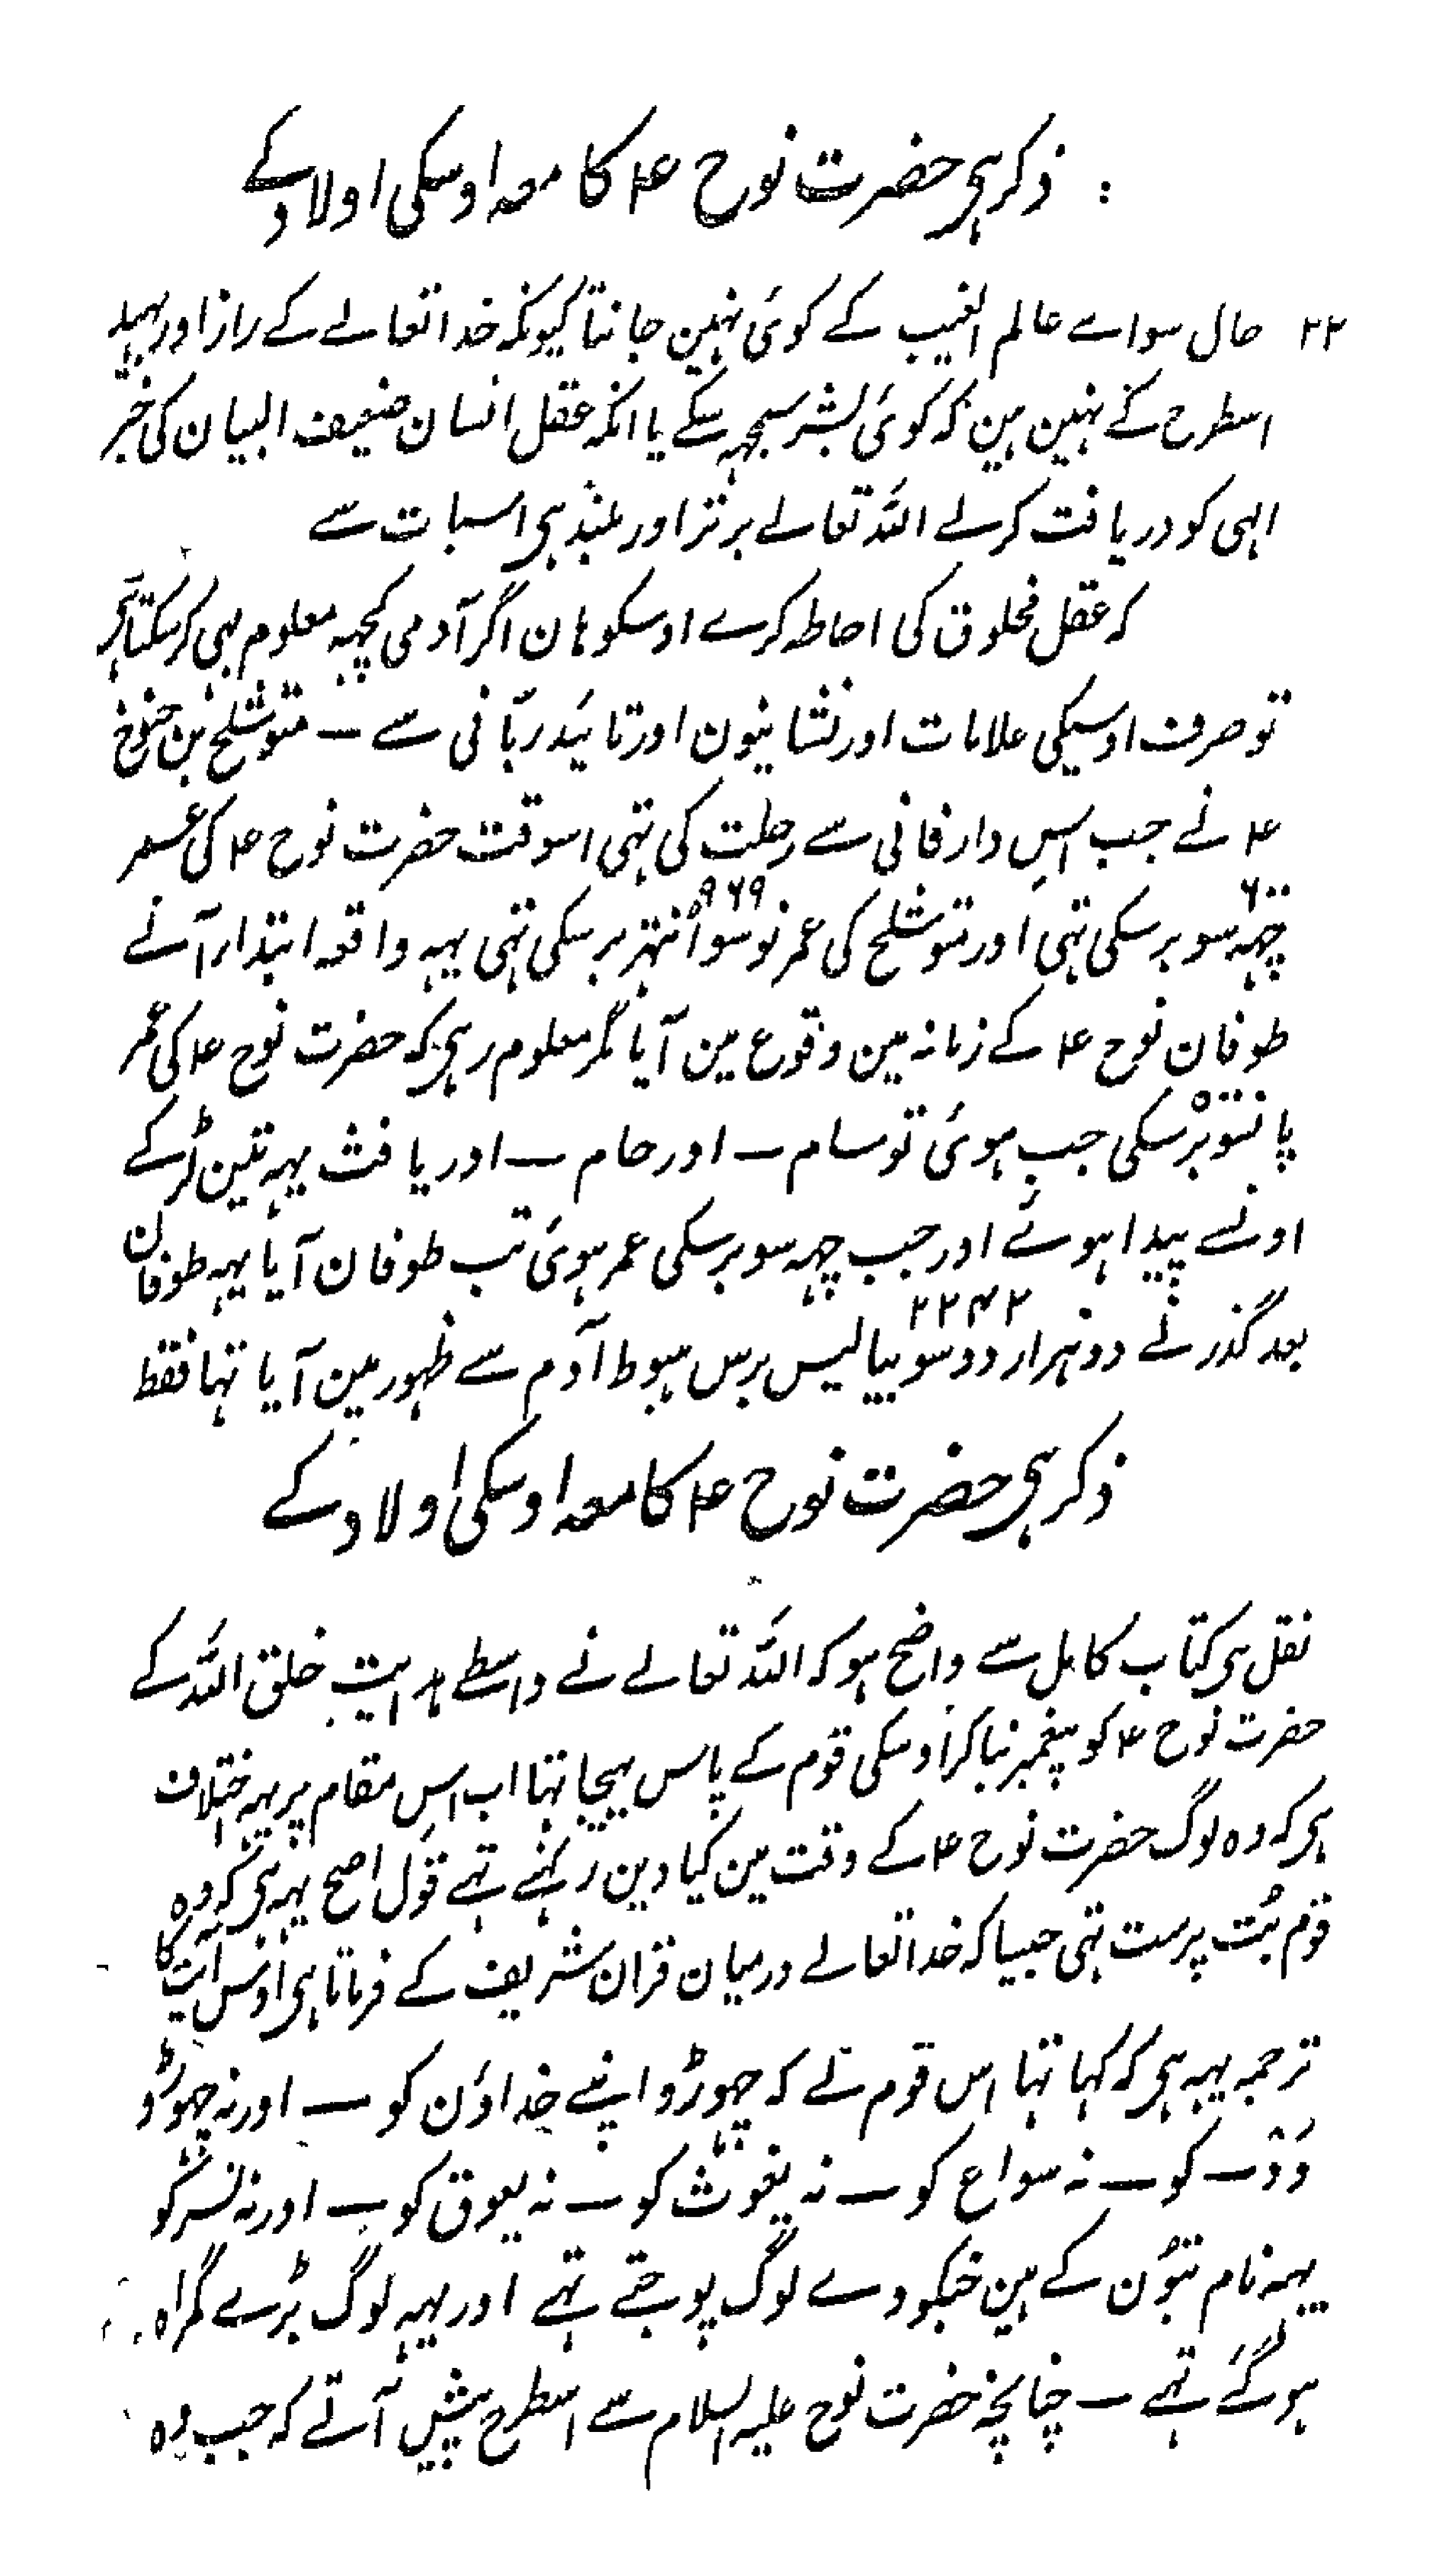 ذکر ہی حضرت نوح ؑ کا معہ اوسکی اولاد کے
۲۲ حال سواے عالم الغیب کے کوئی نہین جانتا کیونکہ خدا تعالے کے راز اور بہید
اسطرح کے نہین ہین کہ کوئی بشر سمجہہ سکے یا انکہ عقل انسان ضعیف البیان کی خبر
الہی کو دریافت کرلے اللہ تعالے برتر اور بلند ہی اسبات سے
کہ عقل مخلوق کی احاطہ کرے اوسکو ہان اگر آدمی کچہہ معلوم بہی کر سکتا ہی
تو صرف اوسیکی علامات اور نشانیون اور تائید ربّانی سے — متوشلح بن خنوخ
ؑ نے جب اسِ دار فانی سے رحلت کی تہی اسوقت حضرت نوح ؑ کی عمر
۶۰۰ ۹۶۹
چہہ سو برسکی تہی اور متوشلح کی عمر نو سو اُنہتر برسکی تہی یہہ واقعہ ابتداء آنے
طوفان نوح ؑ کے زمانہ مین وقوع مین آیا مگر معلوم رہی کہ حضرت نوح ؑ کی عمر
۵۰۰
پانسَو برسکی جب ہوئی تو سام — اور حام — اور یافث یہہ تین لڑکے
اونسے پیدا ہوئے اور جب چہہ سو برسکی عمر ہوئی تب طوفان آیا یہہ طوفان
۲۲۴۲
بعد گذرنے دو ہزار دو سو بیالیس برس ہبوط آدم سے ظہور مین آیا تہا فقط
ذکر ہی حضرت نوح ؑ کا معہ اوسکی اولاد کے
نقل ہی کتاب کامل سے واضح ہو کہ اللہ تعالے نے واسطے ہدایتِ خلق اللہ کے
حضرت نوح ؑ کو پیغمبر بنا کر اوسکی قوم کے پاس بہیجا تہا اب اسِ مقام پر یہہ اختلاف
ہی کہ وہ لوگ حضرت نوح ؑ کے وقت مین کیا دین رکہتے تہے قول اصح یہہ ہی کہ وہ
قوم بُت پرست تہی جیسا کہ خدا تعالے درمیان قران شریف کے فرماتا ہی اوس آیت کا
ترجمہ یہہ ہی کہ کہا تہا اس قوم نے کہ نہ چہوڑو اپنے خداؤن کو — اور نہ چہوڑو
وَدّ — کو — نہ سواع کو — نہ یغوث کو — نہ یعوق کو — اور نہ نسر کو
یہہ نام بتوُن کے ہین جنکو وے لوگ پوجتے تہے اور یہہ لوگ بڑے گمراہ
ہو گئے تہے — چنانچہ حضرت نوح علیہ السلام سے اسطرح پیش آتے کہ جب وہ